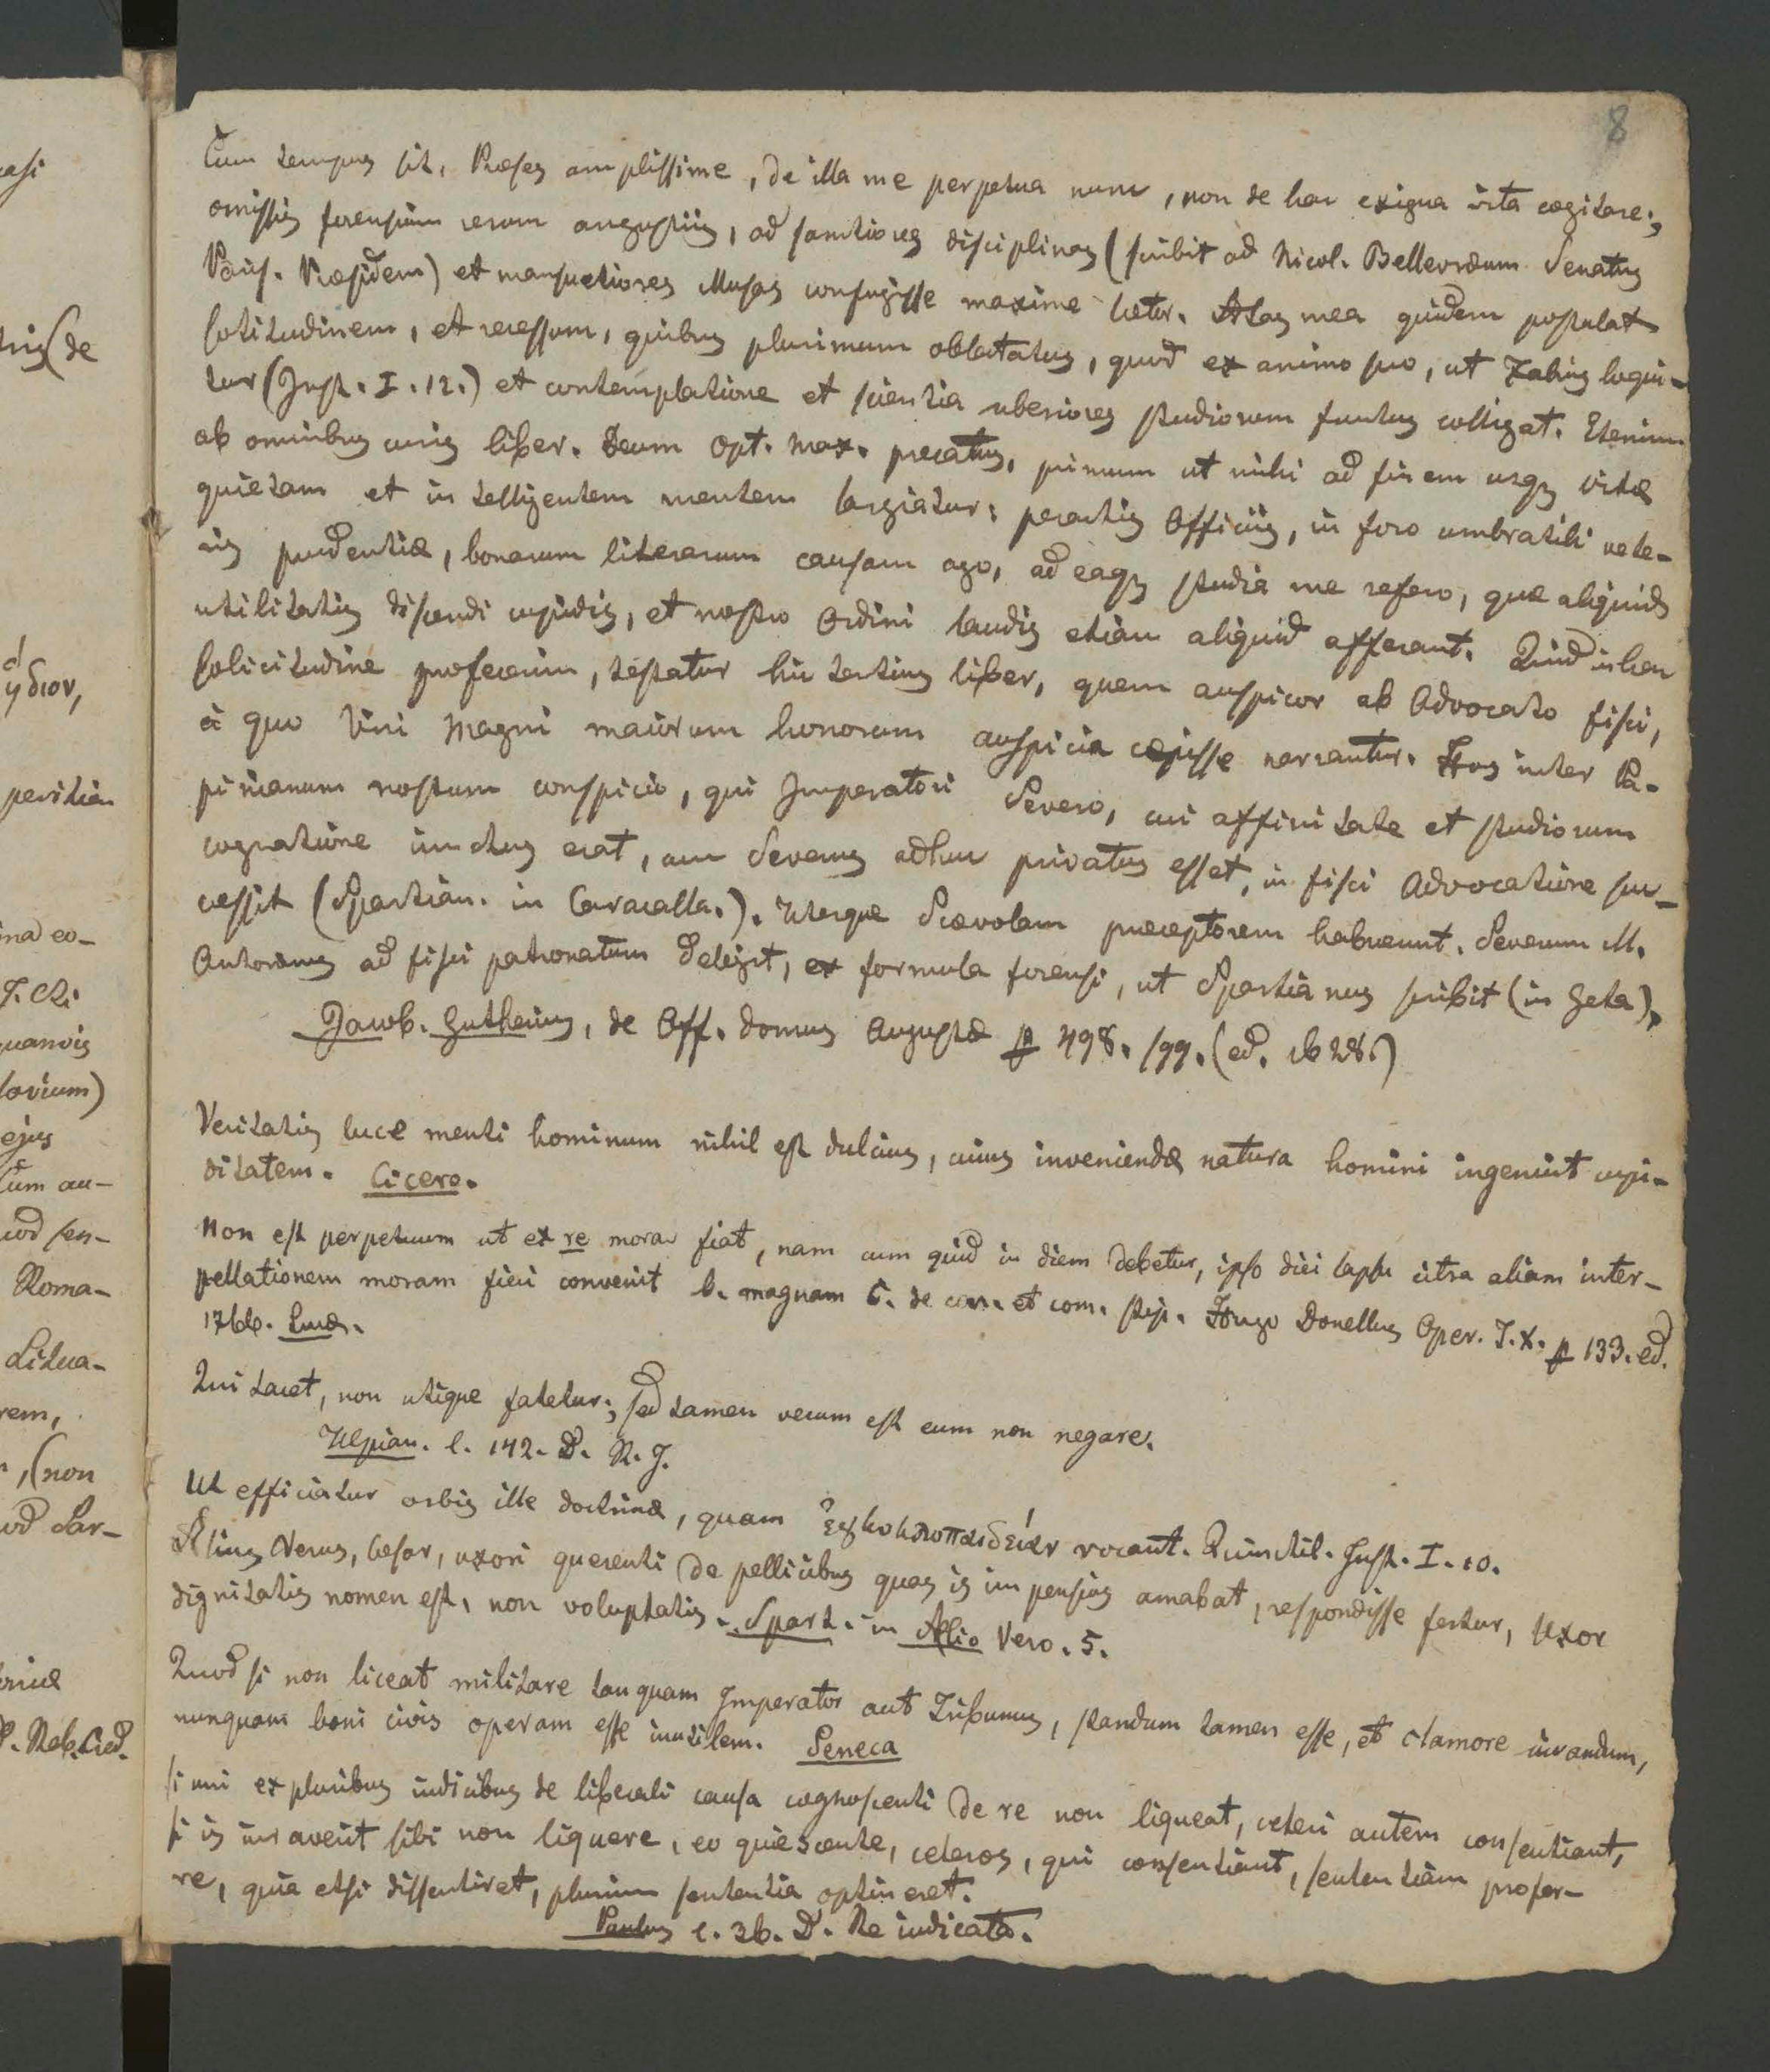 8
Cum tempus sit, Præses amplissime, de illa me perpetua nunc, non de hac exigua vita cogitare;
omissis forensium rerum angustiis, ad sanctiores disciplinas (scribit ad Nicol. Bellevræum Senatus
Paris. Præsidem) et mansuetiores Musas confugisse maxime lætor. Ætas mea quidem postulat
solitudinem, et recessum, quibus plurimum oblectatus, quod ex animo suo, ut Fabius loqui-
tur (Inst. I. 12.) et contemplatione et scientia uberiores studiorum fructus colligat. Etenim
ab omnibus curis liber. Deum Opt. Max. precatus, primum ut mihi ad finem usq; vitæ
quietam et intelligentem mentem largiatur; peractis Officiis, in foro umbratili vete-
ris prudentiæ, bonarum literarum causam ago, ad eaq; studia me refero, quæ aliquid
utilitatis discendi cupidis, et nostro Ordini laudis etiam aliquid afferant. Quid in hac
solicitudine profecerim, testatur hic tertius liber, quem auspicor ab Advocato fisci,
à quo Viri Magni maiorum honorum auspicia cepisse narrantur. Hos inter Pa-
pinianum nostrum conspicio, qui Imperatori Severo, cui affinitate et studiorum
cognatione iunctus erat, cum Severus adhuc privatus esset, in fisci Advocatione suc-
cessit (Spartian. in Caracalla.). Uterque Scævolam præceptorem habuerunt. Severum M.
Antoninus ad fisci patronatum delegit, ex formula forensi, ut Spartianus scribit (in Geta),
Jacob. Gutherius, de Off. Domus Augustæ p 498. sqq. (ed. 1628.)
Veritatis luce menti hominum nihil est dulcius, cuius inveniendæ natura homini ingenuit cupi-
ditatem. Cicero.
Non est perpetuum ut ex re mora fiat, nam cum quid in diem debetur, ipso diei lapsu citra aliam inter-
pellationem moram fieri convenit l. magnam C. de con. et com. stip. Hugo Donellus Oper. T. X. p 133. ed.
1766. Lucæ.
Qui tacet, non utique fatetur; sed tamen verum est eum non negare.
Ulpian. l. 142. D. R. J.
Ut efficiatur orbis ille doctrinæ, quam ἐγκυκλοπαιδείαν vocant. Quinctil. Inst. I. 10.
Ælius Verus, Cesar, uxori querenti de pellicibus quas is impensius amabat, respondisse fertur, Uxor
dignitatis nomen est, non voluptatis. Spart. in Ælio Vero. 5.
Quod si non liceat militare tanquam Imperator aut Tribunus, standum tamen esse, et clamore iuvandum,
nunquam boni civis operam esse inutilem. Seneca
Si uni ex pluribus iudicibus de liberali causa cognoscenti de re non liqueat, ceteri autem consentiant,
si is iuraverit sibi non liquere, eo quiescente, ceteros, qui consentiant, sententiam profer-
re, quia etsi dissentiret, plurium sententia optineret.
Paulus l. 36. D. Re iudicata.